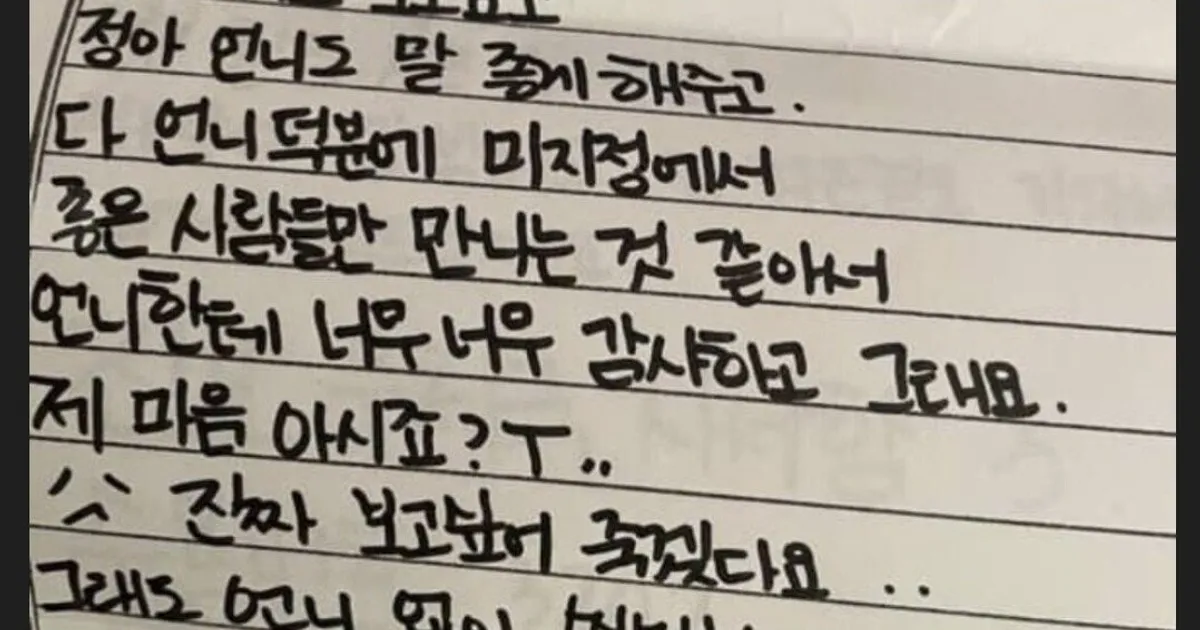 정아 언니도 말 좋게 해주고.
다 언니 덕분에 미지정에서
좋은 사람들만 만나는 것 같아서
언니한테 너무너무 감사하고 그래요.
제 마음 아시죠? ㅜ..
진짜 보고싶어 죽겠다요 ..
그래도 언니 없이